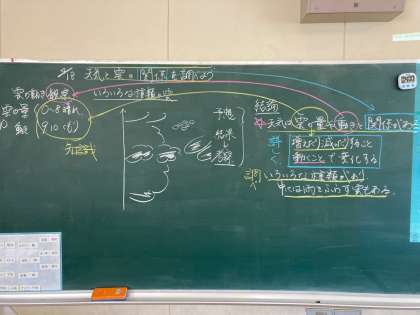 天気と雲の関係を調べよう
雲の動き観察
いろいろな種類の雲
雲の量
0〜8 晴れ
9 10 くもり
予想
結果
考察
結論
天気は雲の量や動きと関係がある
増えたり減ったりすること
動くことで変化する
調 いろいろな種類があり
中には雨をふらす雲もある。